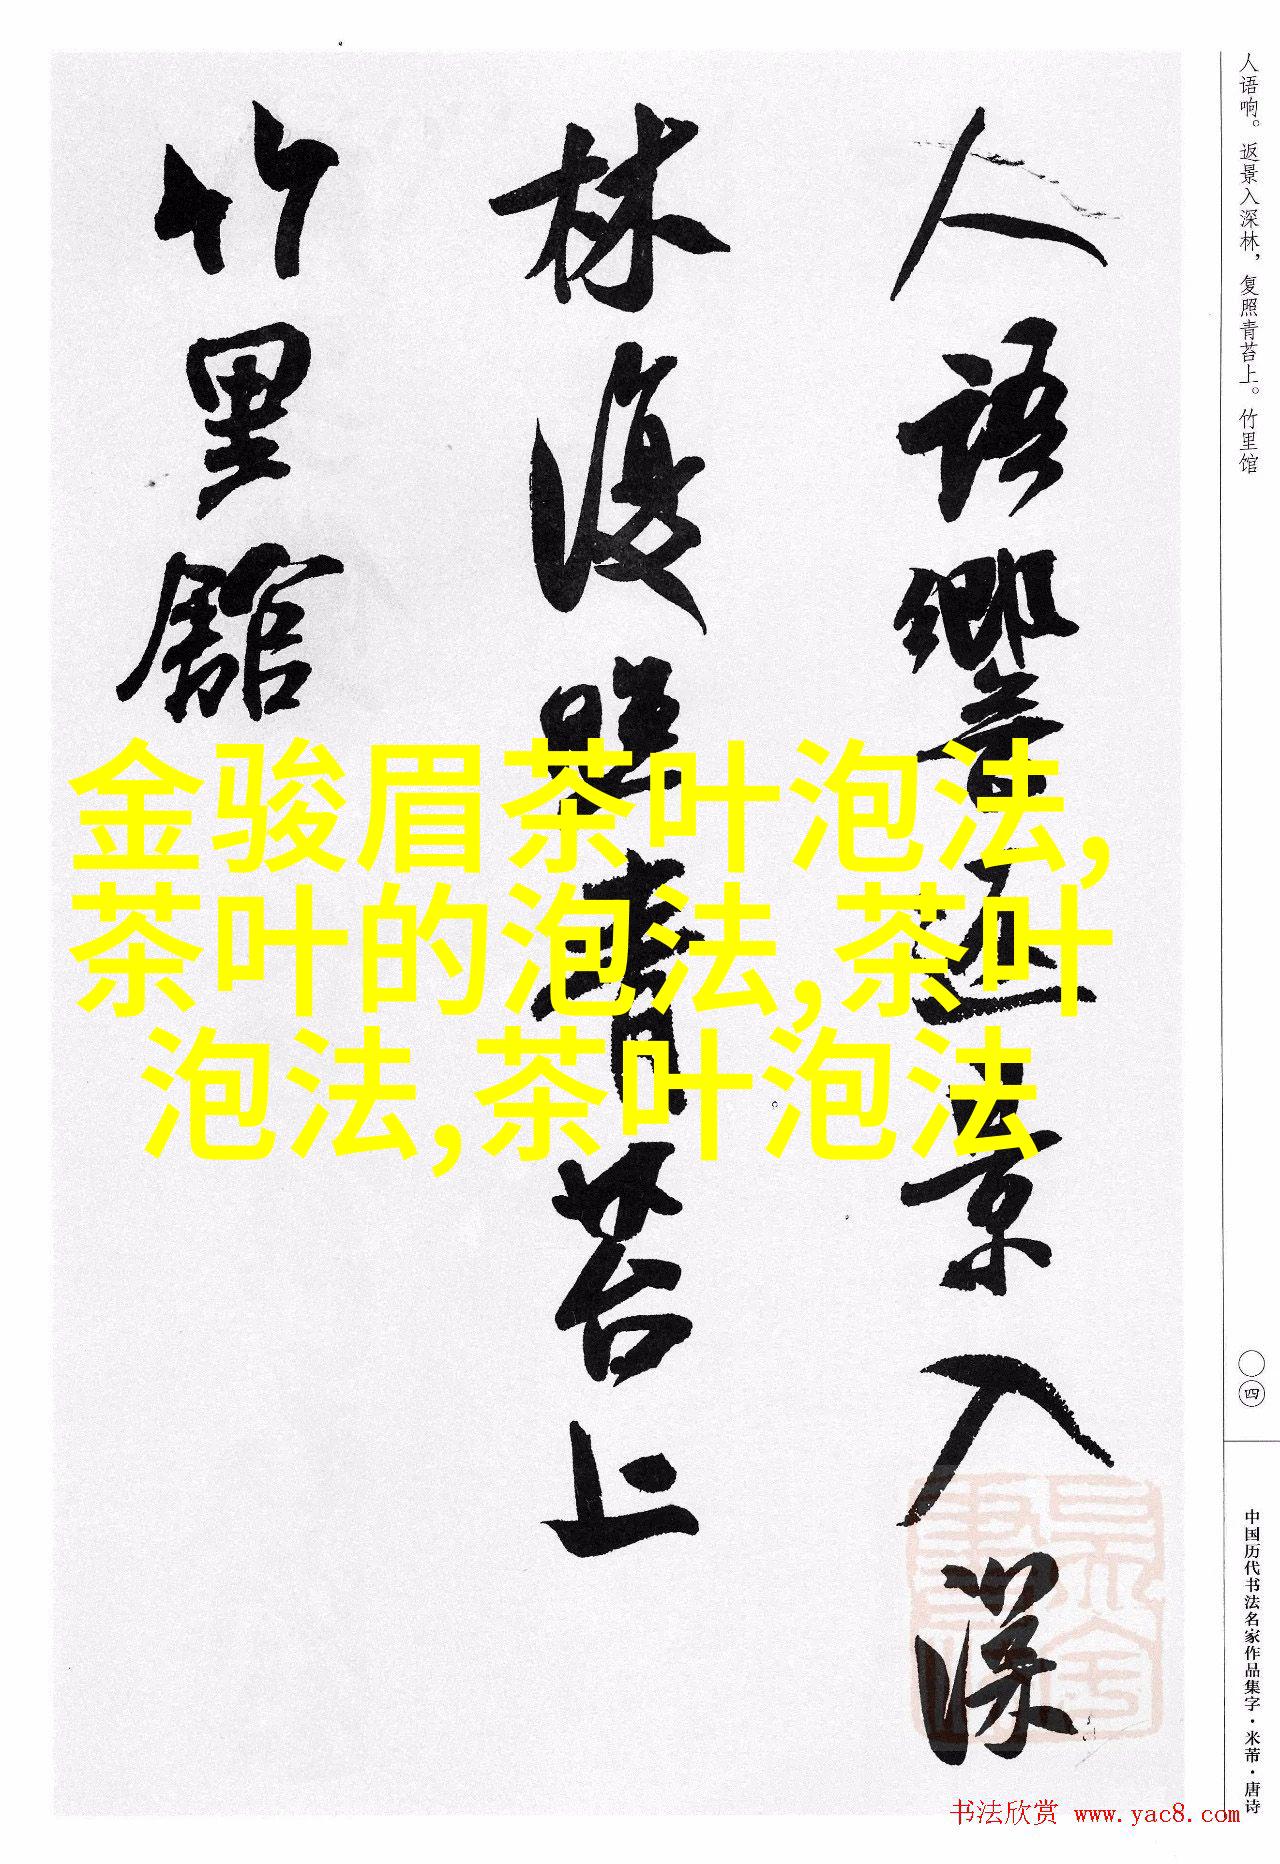 人语响。返景入深林，复照青苔上。竹里馆
人語響返景入深
林復照青苔上
竹里館
金骏眉茶叶泡法,
茶叶的泡法,茶叶
泡法,茶叶泡法
〇四
中国历代书法名家作品集字·米芾·唐诗
书法欣赏 www.yac8.com